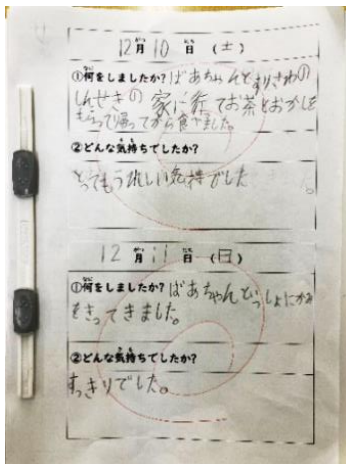 12月10日(土)
①何をしましたか?ばあちゃんとすりさわの
しんせきの家に行ってお茶とおかしを
もらって帰ってから食べました。
②どんな気持ちでしたか?
とってもうれしい気持でした。
12月11日(日)
①何をしましたか?ばあちゃんといっしょにかみ
をきってきました。
②どんな気持ちでしたか?
すっきりでした。